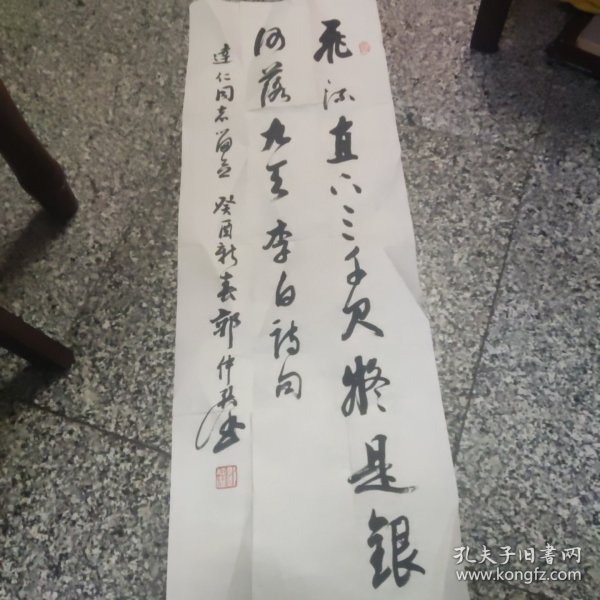 飞流直下三千尺疑是银
河落九天 李白诗句
达仁同志留念 癸酉新春 郭仲
孔夫子旧书网
www.kongfz.com